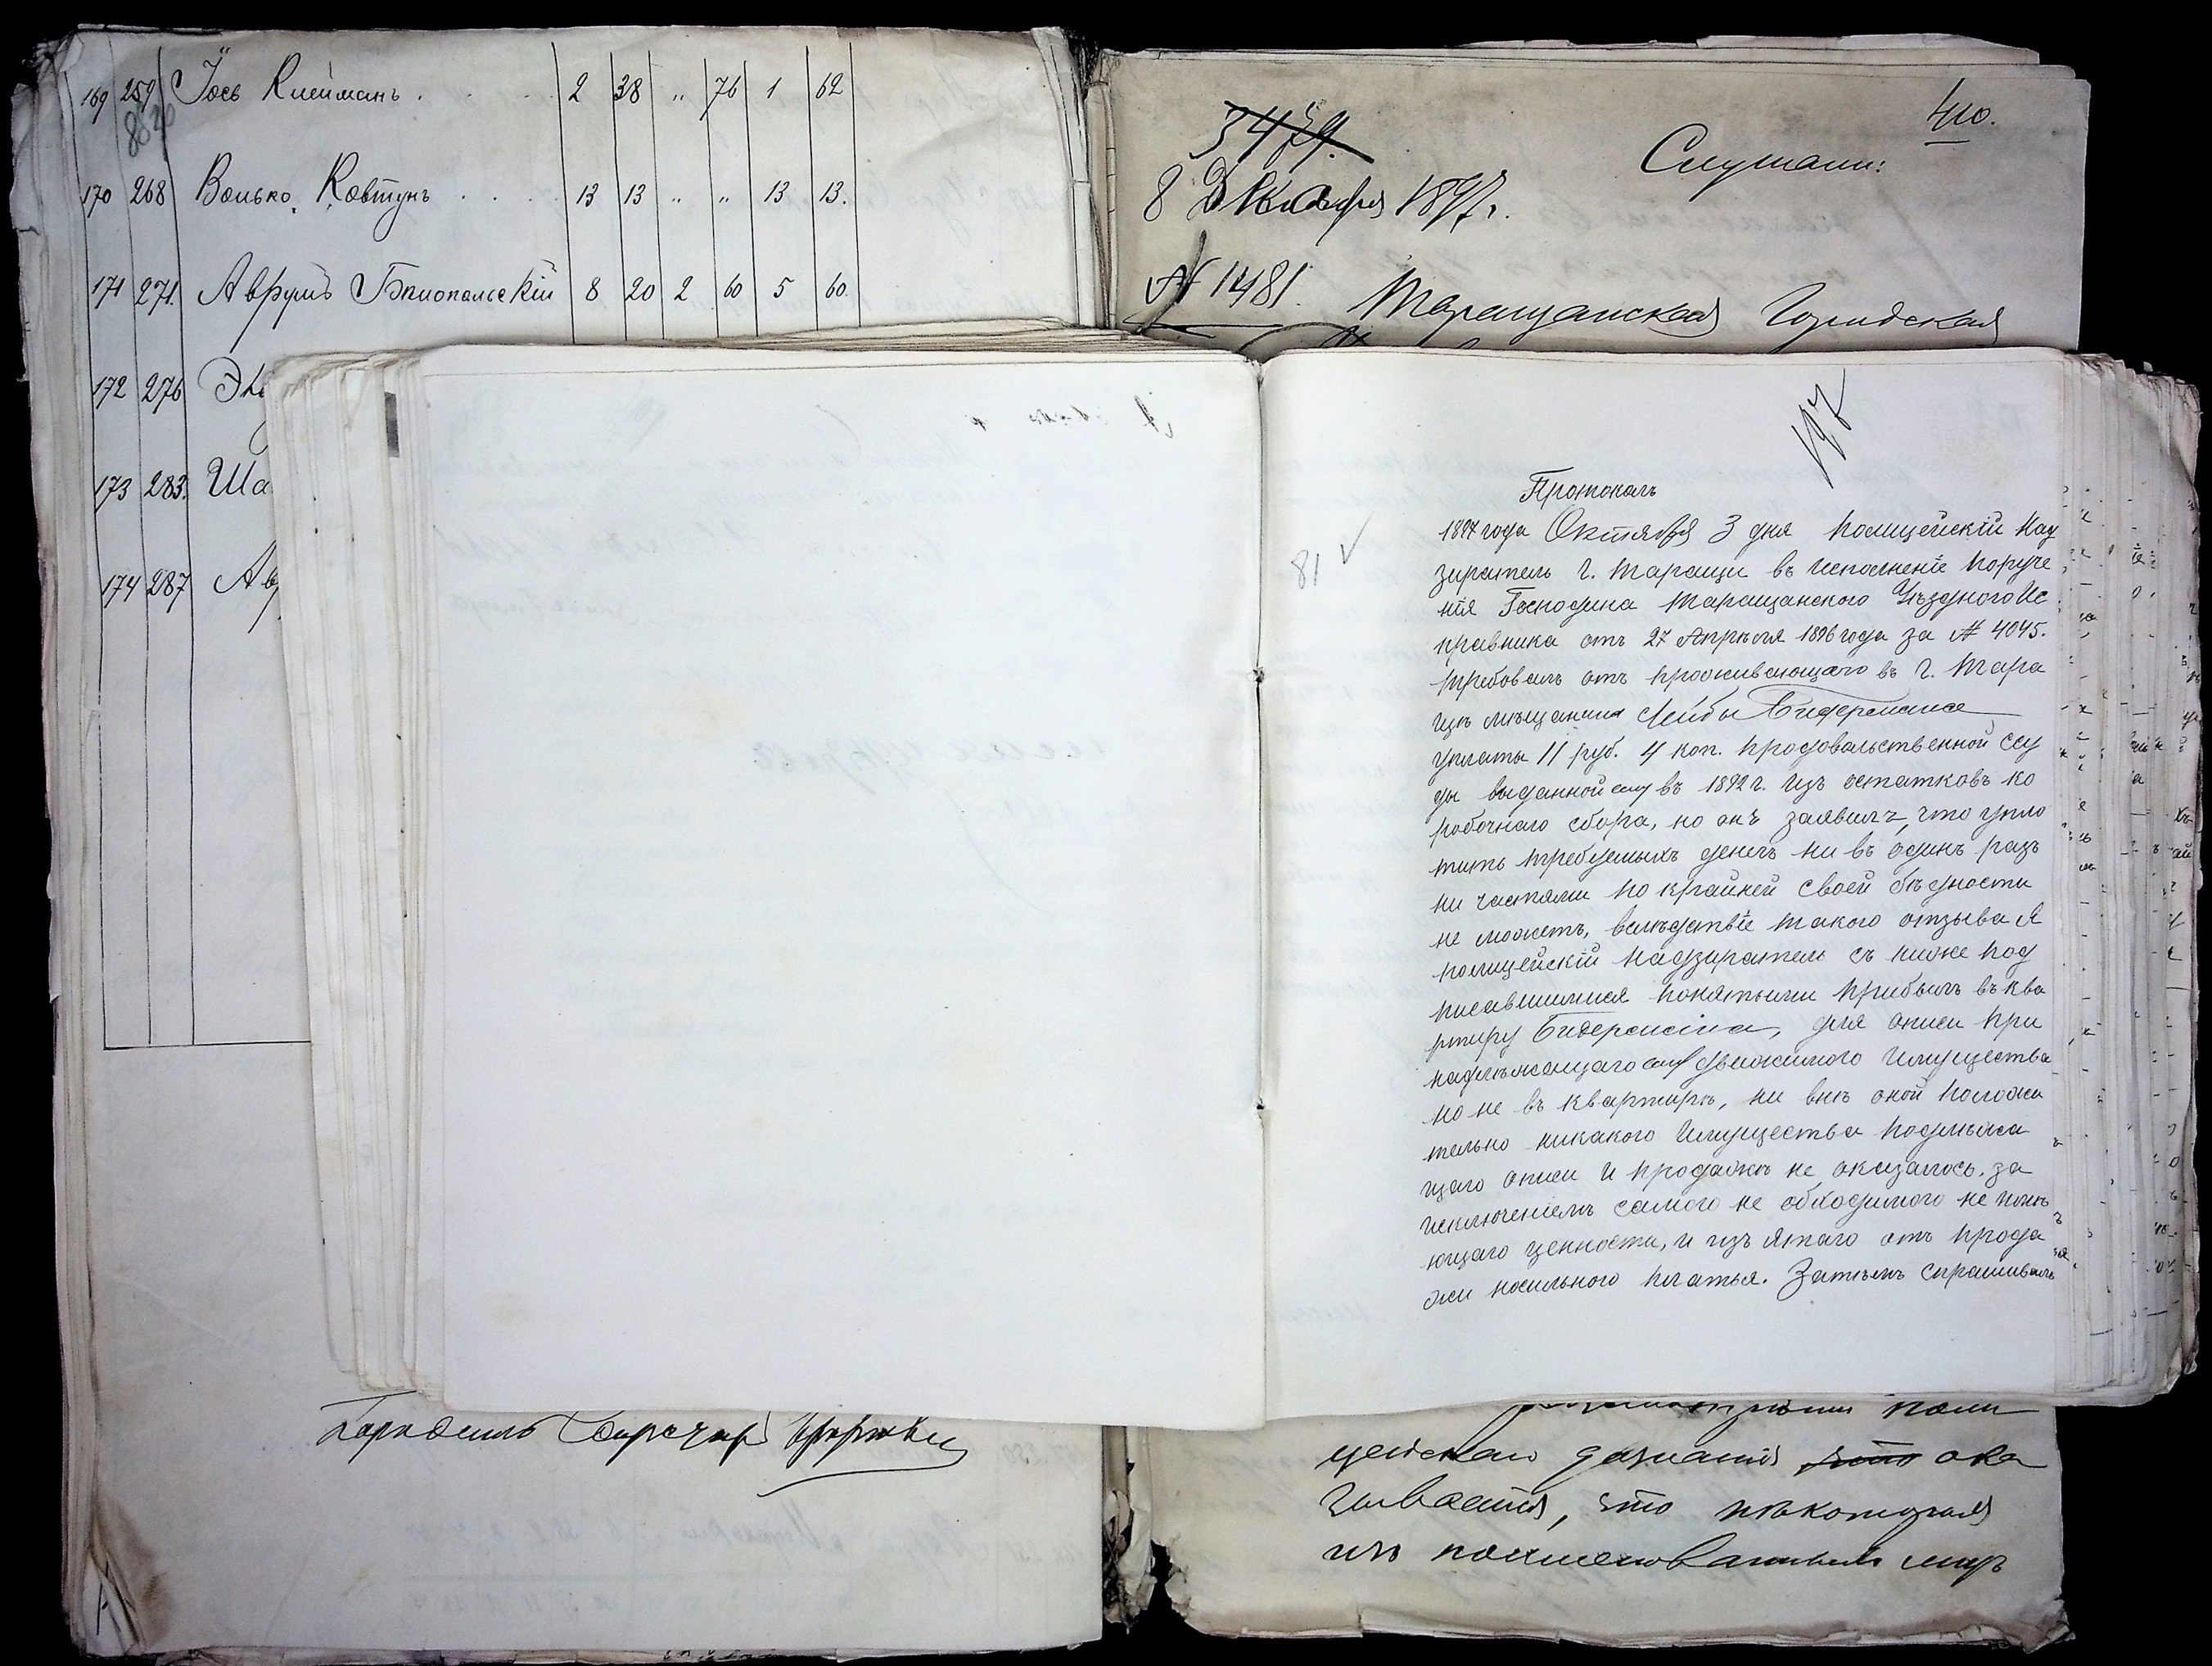 169 259 Іось Клейманъ . . . . 2 38 „ 76 1 62
170 268 Волько Ковтунъ . . . . 13 13 „ „ 13 13.
171 271. Аврумъ Бялопольскій 8 20 2 60 5 60.
172 276
173 283. Ша
174 287 Ав
410.
Слушали:
8 Декабря 1897 г.
№ 1481.
Таращанская Городская
197
81 √
Протоколъ
1897 года Октября 3 дня Полицейскій Над
зиратель г. Таращи въ исполненіе поруче
нія Господина Таращанского Уѣздного Ис
правника отъ 27 Апрѣля 1896 года за № 4045.
требовалъ отъ проживающаго въ г. Тара
щѣ мѣщанина Лейбы Бидермана
уплаты 11 руб. 4 коп. продовольственной ссу
ды выданной ему въ 1892 г. изъ остатковъ ко
робочнаго сбора, но онъ заявилъ, что упла
тить требуемыхъ денегъ ни въ одинъ разъ
ни частями по крайней своей бѣдности
не можетъ, вслѣдствіе такого отзыва я
полицейскій надзиратель съ ниже под
писавшимися понятыми прибылъ въ ква
ртиру Бидермана, для описи при
надлежащаго ему движимого имущества
но не въ квартирѣ, ни внѣ оной положи
тельно никакого имущества подлежа
щаго описи и продажѣ не оказалось, за
исключеніемъ самого не обходимого не имѣ
ющаго ценности, и изъ ятаго отъ прода
жи носильного платья. Затѣмъ спрашивалъ
цейскаго дознанія что ока
зывается, что нѣкоторыя
изъ поименованныхъ лицъ